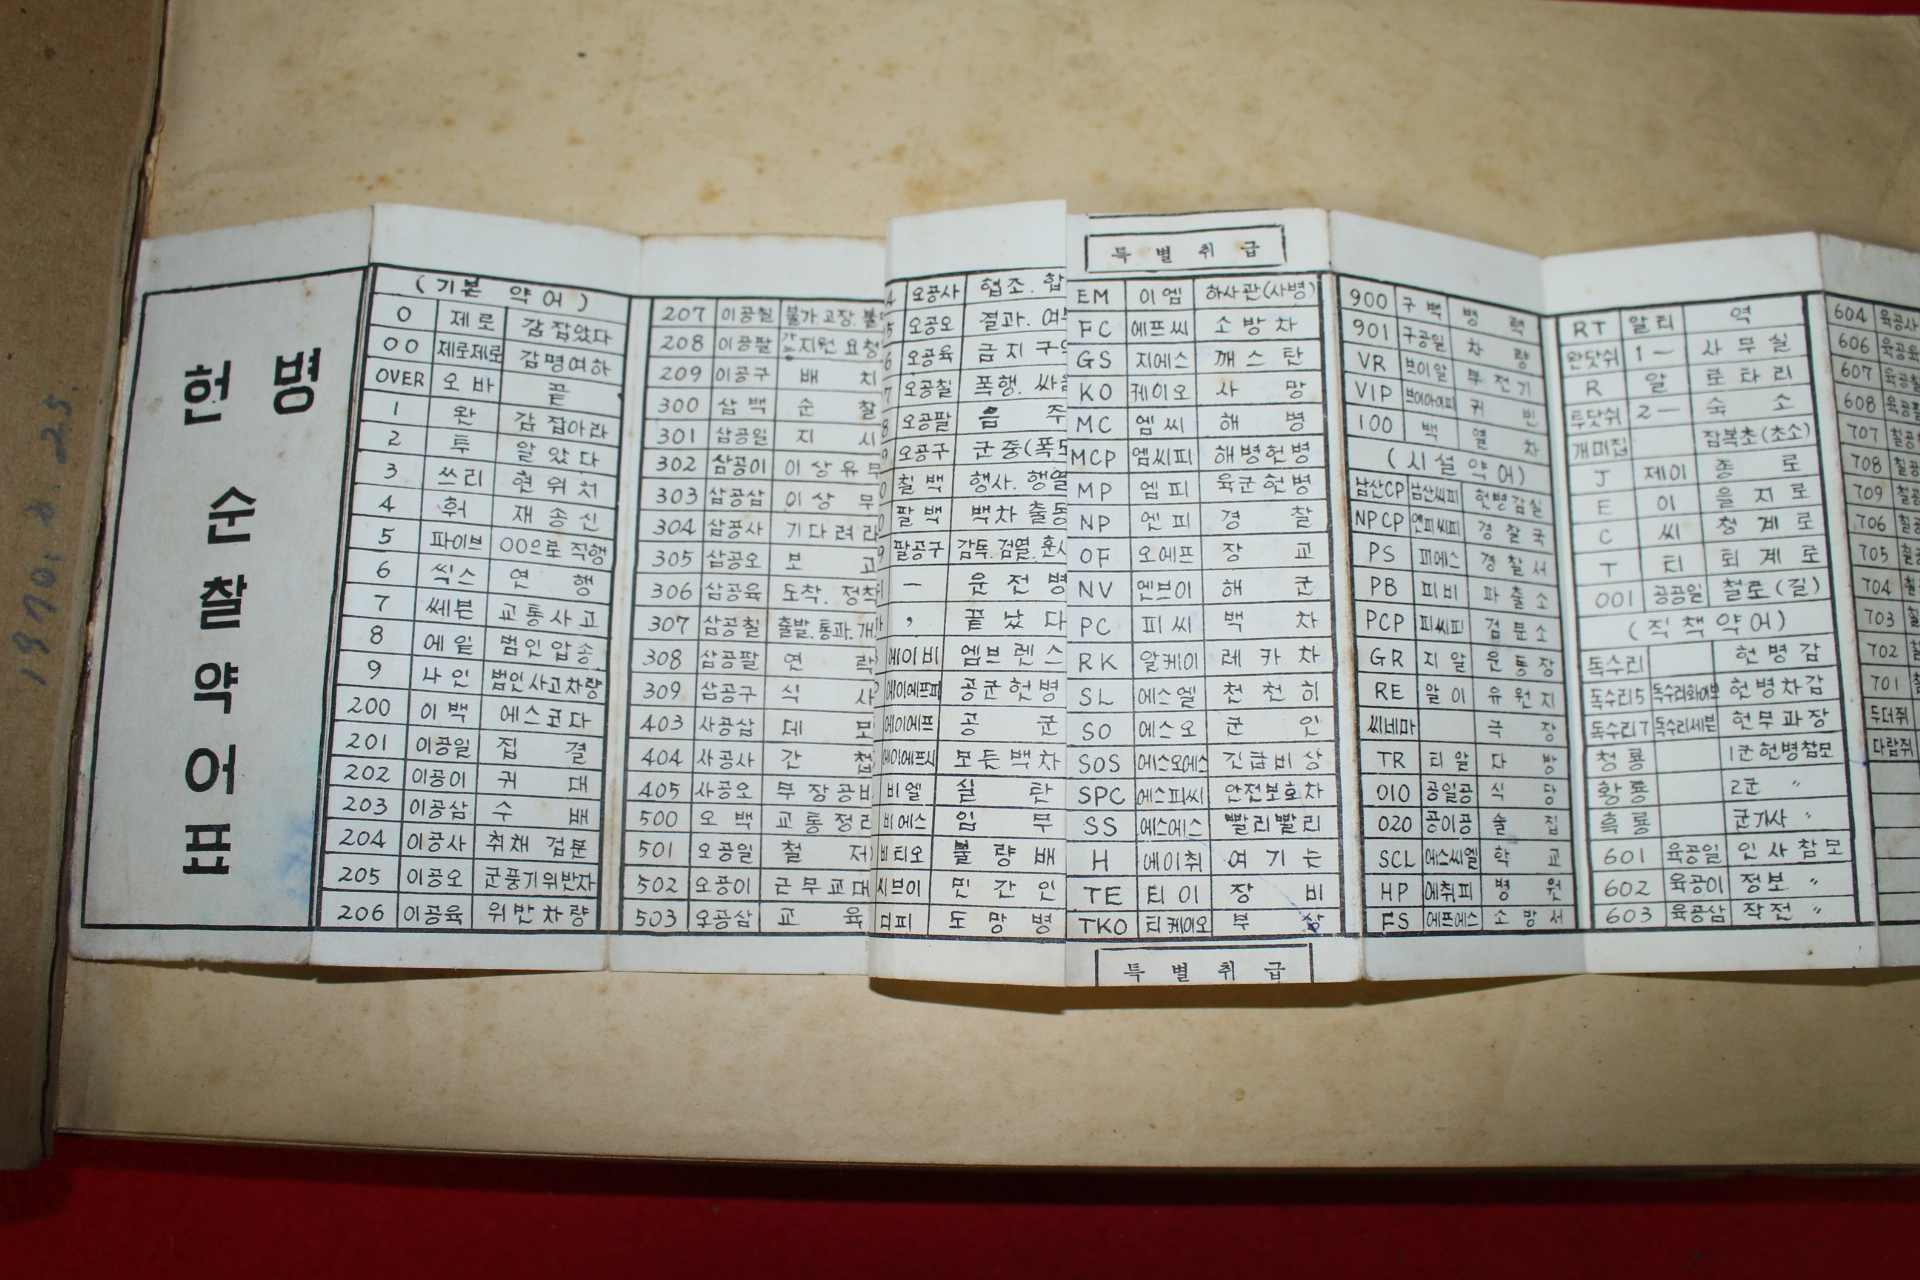 1970. 2. 25.
헌 병
순 찰 약 어 표
(기본 약어)
0 제로 감잡았다
00 제로제로 감명여하
OVER 오바 끝
1 완 감잡아라
2 투 알았다
3 쓰리 현위치
4 훠 재송신
5 파이브 00으로 직행
6 씩스 연 행
7 쎄븐 교통사고
8 에잍 범인압송
9 나인 범인사고차량
200 이백 에스코다
201 이공일 집 결
202 이공이 귀 대
203 이공삼 수 배
204 이공사 취채 검문
205 이공오 군풍기위반자
206 이공육 위반차량
207 이공칠 불가.고장.불
208 이공팔 지원요청
209 이공구 배 치
300 삼백 순 찰
301 삼공일 지 시
302 삼공이 이상유무
303 삼공삼 이상 무
304 삼공사 기다려라
305 삼공오 보 고
306 삼공육 도착.정차
307 삼공칠 출발.통과.개
308 삼공팔 연 락
309 삼공구 식 사
403 사공삼 데 모
404 사공사 간 첩
405 사공오 무장공비
500 오백 교통정리
501 오공일 철 저
502 오공이 근무교대
503 오공삼 교 육
4 오공사 협조.합
5 오공오 결과.여부
6 오공육 금지구역
7 오공칠 폭행.싸움
8 오공팔 음 주
9 오공구 군중(폭도
0 칠백 행사.행렬
0 팔백 백차출동
9 팔공구 감독.검열.훈시
— 운전병
, 끝났다
에이비 엠브렌스
에이에프피 공군헌병
에이에프 공 군
모든백차
비엘 실 탄
비에스 임 무
비티오 불량배
씨브이 민간인
디피 도망병
특별취급
EM 이엠 하사관(사병)
FC 에프씨 소방차
GS 지에스 깨스탄
KO 케이오 사 망
MC 엠씨 해 병
MCP 엠씨피 해병헌병
MP 엠피 육군헌병
NP 엔피 경 찰
OF 오에프 장 교
NV 엔브이 해 군
PC 피씨 백 차
RK 알케이 레카차
SL 에스엘 천천히
SO 에스오 군 인
SOS 에스오에스 긴급비상
SPC 에스피씨 안전보호차
SS 에스에스 빨리빨리
H 에이취 여기는
TE 티이 장 비
TKO 티케이오 부 상
특별취급
900 구백 병 력
901 구공일 차 량
VR 브이알 무전기
VIP 브이아이피 귀 빈
100 백 열 차
(시설약어)
남산CP 남산씨피 헌병감실
NPCP 엔피씨피 경찰국
PS 피에스 경찰서
PB 피비 파출소
PCP 피씨피 검문소
GR 지알 운동장
RE 알이 유원지
씨네마 극 장
TR 티알 다 방
010 공일공 식 당
020 공이공 술 집
SCL 에스씨엘 학 교
HP 에취피 병 원
FS 에프에스 소방서
RT 알티 역
완닷쉬 1— 사무실
R 알 로타리
투닷쉬 2— 숙 소
개미집 잠복초(초소)
J 제이 종 로
E 이 을지로
C 씨 청계로
T 티 퇴계로
001 공공일 철로(길)
(직책약어)
독수리 헌병감
독수리5 독수리화이브 헌병차감
독수리7 독수리세븐 헌부과장
청룡 1군헌병참모
황룡 2군 〃
흑룡 군기사 〃
601 육공일 인사참모
602 육공이 정보 〃
603 육공삼 작전 〃
604 육공사
606 육공육
607 육공칠
608 육공팔
707 칠공
708 칠공
709 칠공
706 칠공
705 칠
704 칠공
703 칠
702 칠
701 칠
두더쥐
다람쥐